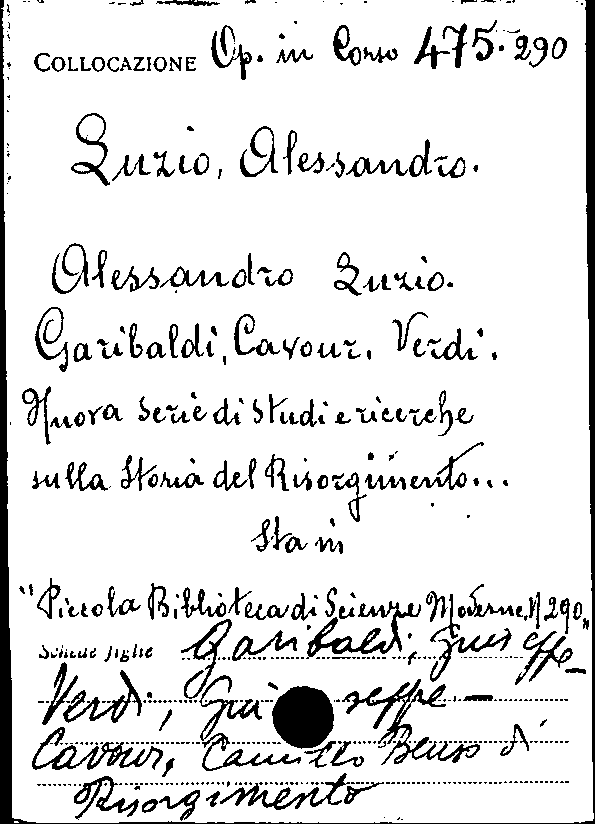 COLLOCAZIONE Op. in Corso 475.290
Luzio, Alessandro.
Alessandro Luzio.
Garibaldi, Cavour. Verdi.
Nuova serie di studi e ricerche
sulla Storia del Risorgimento...
Sta in
"Piccola Biblioteca di Scienze Moderne, N 290"
Schede figlie Garibaldi, Giuseppe –
Verdi, Giuseppe –
Cavour, Camillo Benso di
Risorgimento